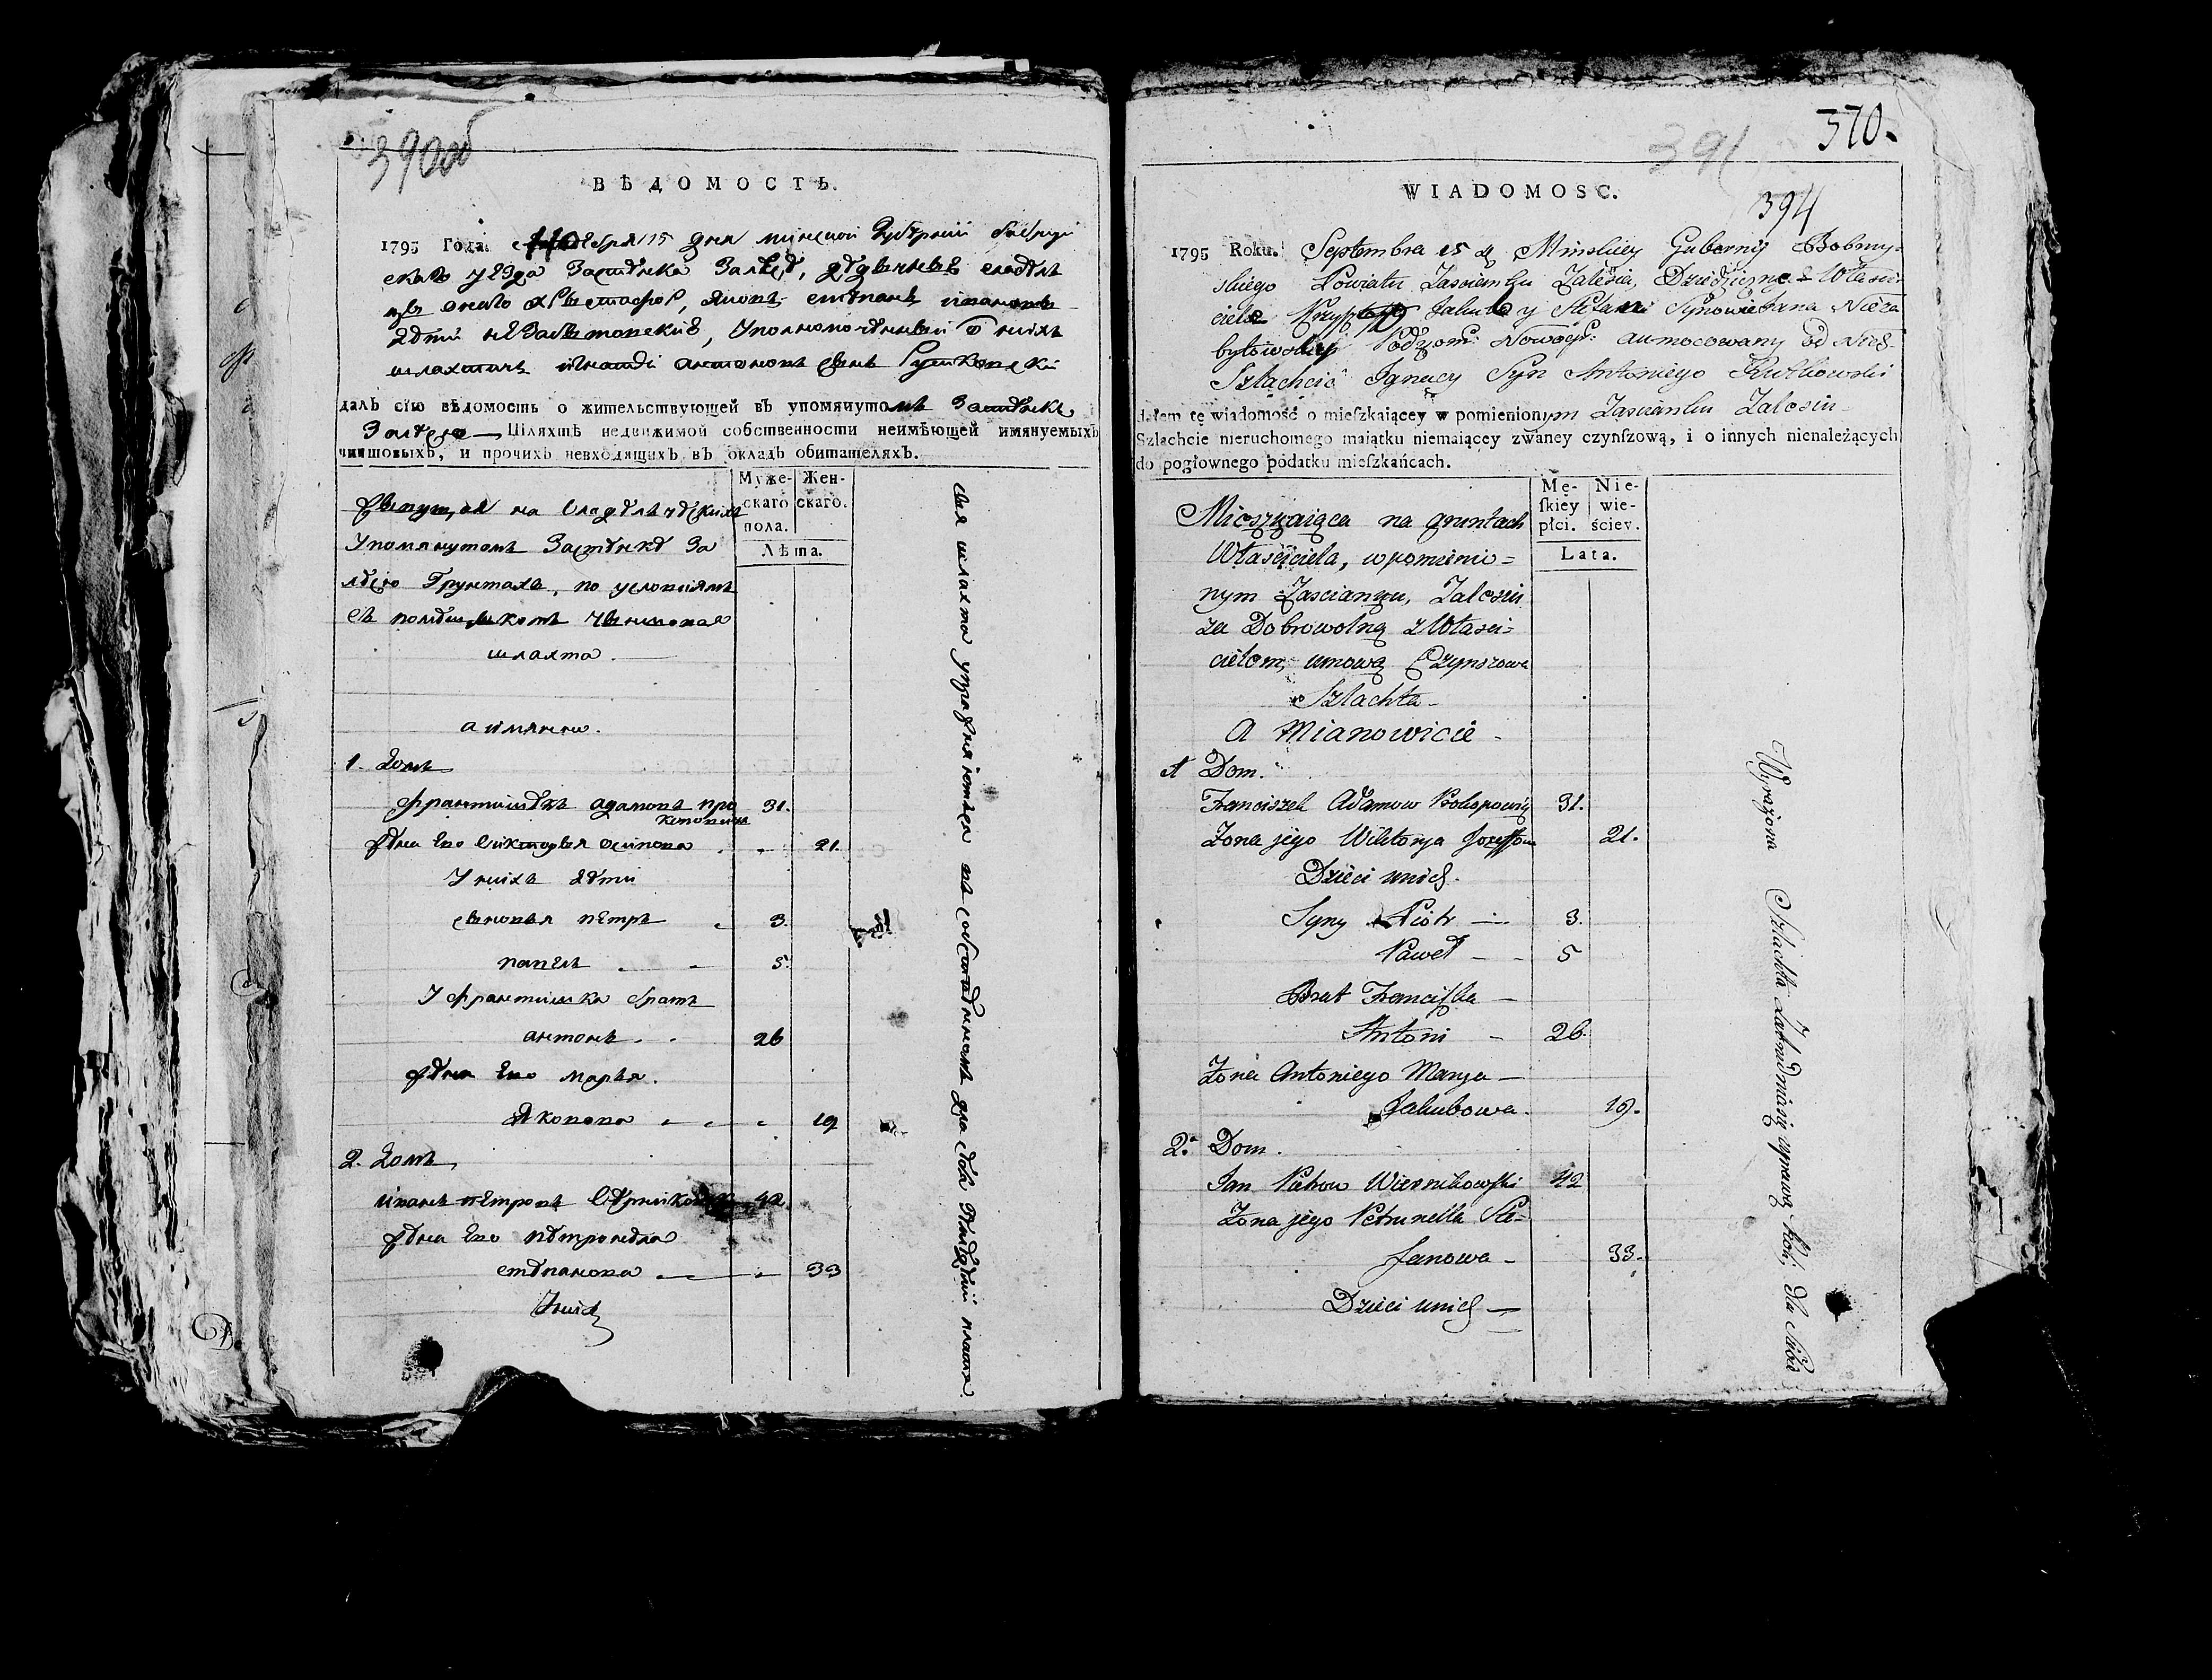 390об
ВѢДОМОСТЬ.
1795 Года. 15 дня минской Губернии Бобруй
скаго уезда Застенка Залесе,
онаго Христофор, Яковъ, степанъ ивановы
дети незабытовские, уполномоченный о нихъ
шляхтичъ игнати антоновъ сынъ Рутковски
далъ сію вѣдомость о жительствующей въ упомянутомъ Застенке
Залесю Шляхтѣ недвижимой собственности неимѣющей имянуемыхъ
чиншовыхъ, и прочихъ невходящихъ въ окладъ обитателяхъ.
Муже-скаго пола. Жен-скаго.
Лѣта.
живущая на владелческихъ
упомянутомъ Застенке За
лесю Грунтахъ, по условиямъ
съ помещикомъ чиншовая
шляхта
а имянно.
1. Домъ
Францишекъ адамовъ про 31.
коповичъ
жена Его виктория осипова 21.
У нихъ дети
сыновья петръ 3.
павелъ 5.
У Францишка братъ
антонъ 26
жена Его марья.
Яковова 19
2. Домъ
иванъ петровъ 42
жена Его петронеля
степанова 33
У нихъ
сия шляхта упражняются въ хлебъ
370.
391
394
WIADOMOSC.
1795 Roku. Septembra 15 d Minskiey Gubernij Bobruy-
skiego Powiatu Zascianku Zalesia, Dziedziczne Własci-
ciele Krysztof Jakub y Stefan Synowie Jana Nieza
bytowskiey umocowany od Nich
Szlachcic Ignacy Syn Antoniego Rutkowski
dałem tę wiadomość o mieszkaiącey w pomienionym Zascianku Zalesiu
Szlachcie nieruchomego maiątku niemaiącey zwaney czynszową, i o innych nienależących
do pogłownego podatku mieszkańcach.
Mę-skiey płci. Nie-wie-ściey.
Lata.
Mieszkaiąca na gruntach
Właściciela, w pomienio-
nym Zascianku, Zalesiu
za Dobrowolną z Własci-
cielem, umową Czynszowa
Szlachta
A Mianowicie
1 Dom.
Franciszek Adamow Prokopowicz 31.
Zona jego Wiktorya Jozefowa 21.
Dzieci unich.
Syny Piotr 3.
Paweł 5
Brat Franciszka
Antoni 26.
Zona Antoniego Marya
Jakubowa. 19.
2. Dom.
Jan Petrow Wiernikowski 42
Zona jego Petrunella Ste-
fanowa 33.
Dzieci unich
Wyrażona Szlachta Zatrudniaią się uprawą Roli, dla Siebie